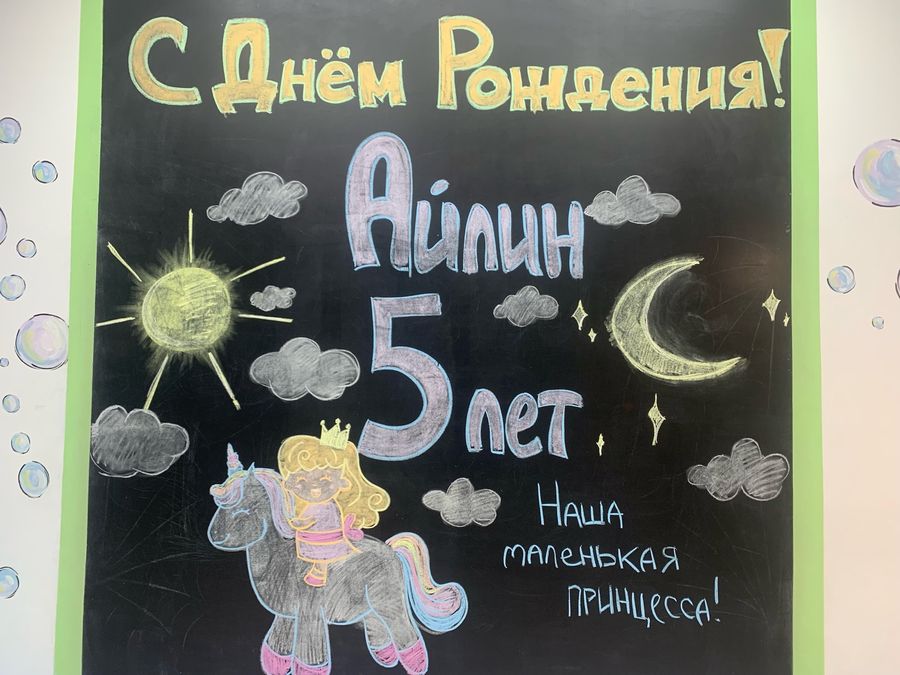 С Днём Рождения!
Айлин
5 лет
Наша
маленькая
принцесса!